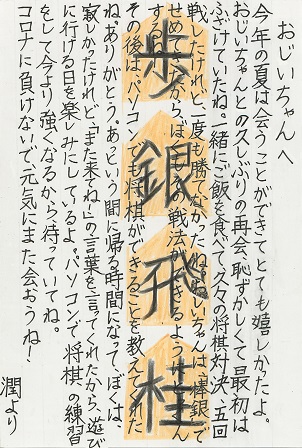 おじいちゃんへ
今年の夏は会うことができてとても嬉しかったよ。
おじいちゃんとの久しぶりの再会、恥ずかしくて最初は
ふざけていたね。一緒にご飯を食べて、久々の将棋対決、五回
戦ったけれど、一度も勝てなかったね。おじいちゃんは、棒銀で
せめてきたから、ぼくの戦法ができるよう
その後は、パソコンでも将棋ができることを教えてくれた
ね。ありがとう。あっという間に帰る時間になって、ぼくは、
寂しかったけれど、「また来てね」の言葉を言ってくれたから、遊び
に行ける日を楽しみにしているよ。パソコンで将棋の練習
をして今より強くなるから、待っていてね。
コロナに負けないで、元気にまた会おうね！
潤より
歩
銀
飛
桂